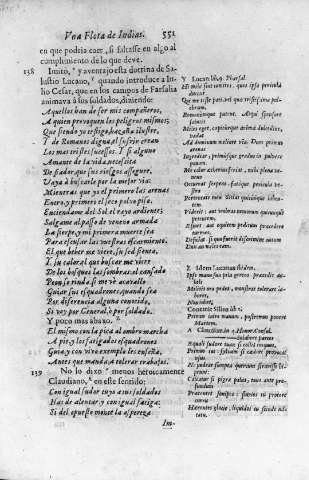 Vna Flota de Indias. 551
en que podria caer, si faltasse en algo al
cumplimiento de lo que deve.
138 Imitò, y aventajo esta dotrina de Sa-
lustio Lucano, quando introduce a Iu-
lio Cesar, que en los campos de Farsalia
animava à sus soldados, diziendo:
Aquellos han de ser mis compañeros,
A quien provoquen los peligros mismos;
Que siendo yo testigo, hazaña ilustre,
Y de Romanos digna, el sufrir crean
Los mas tristes sucessos. Y si alguno
Amante de la vida necessita
De fiador que sus riesgos assegure,
Vaya à buscarle por la mejor via:
Mientras que yo el primero las arenas
Entro, y primero el seco polvo pisa.
Enciendame del Sol el rayo ardiente;
Salgame al passo de veneno armada
La sierpe, y mi primera muerte sea
Para escusar las vuestras escarmiento.
El que beber me viere, su sed sienta,
Y su calor al que buscar me viere
De los bosques las sombras, al cansado
Peon se rinda si me vè à cavallo
Guiar sus esquadrones, quando sea
Por diferencia alguna conocido,
Si voy por General, ò por soldado.
Y poco mas abaxo.
El mismo con la pica al ombro marcha
A pie, y los fatigados esquadrones
Guia, y con vivo exemplo les enseña,
Antes que manda, à tolerar trabajos.
139 No lo dixo menos heroicamente
Claudiano, en este sentido:
Con igual sudor tuyo à tus soldados
Has de alentar, y con igual fatiga:
Si del opuesto monte la aspereza
Im-
Y Lucan. lib. 9. Pharsal.
Hi mihi sint comites, quos ipsa pericula
ducent
Qui me teste pati vel quæ tristissima pul-
chrum,
Romanumque putent. At qui sponsore
salutis
Miles eget, capiturque animæ dulcedine,
vadat
Ad dominum meliore via. Dum primus
arenas
Ingrediar, primusque gradus in pulvere
ponam.
Me calor æthereus feriat, mihi plena ve-
neno
Occurrat serpens, fatoque pericula ve-
stra
Prætentate meo. Sitiat quicumque biben-
tem
Viderit: aut umbras nemorum quicumque
petentem
Æstuet: aut equitem peditum præcedere
turmas,
Deficiat: si quo fuerit discrimine notum
Dux, an miles eam.
Z Idem Lucanus ibidem.
Ipse manu sua pila gerens præcedit an-
heli
Militis ora pedes, monstrat tolerare la-
bores,
Non iubet.
Primus inire manu, postremus ponere
Martem.
A Claudian. in 4. Honor. Consul.
Solabere partes
Æquali sudore tuas: si collis iniquus,
Primus ini: sylvam si cædere provocat
usus,
Ne pudeat sumpta quercum stravisse bi-
penni.
Calcatur si pigra palus, tuus ante pro-
fundum
Prætentet sonipes: fluvios tu protere
curru
Hærentes glacie, liquidos tu scinde na-
tatu.